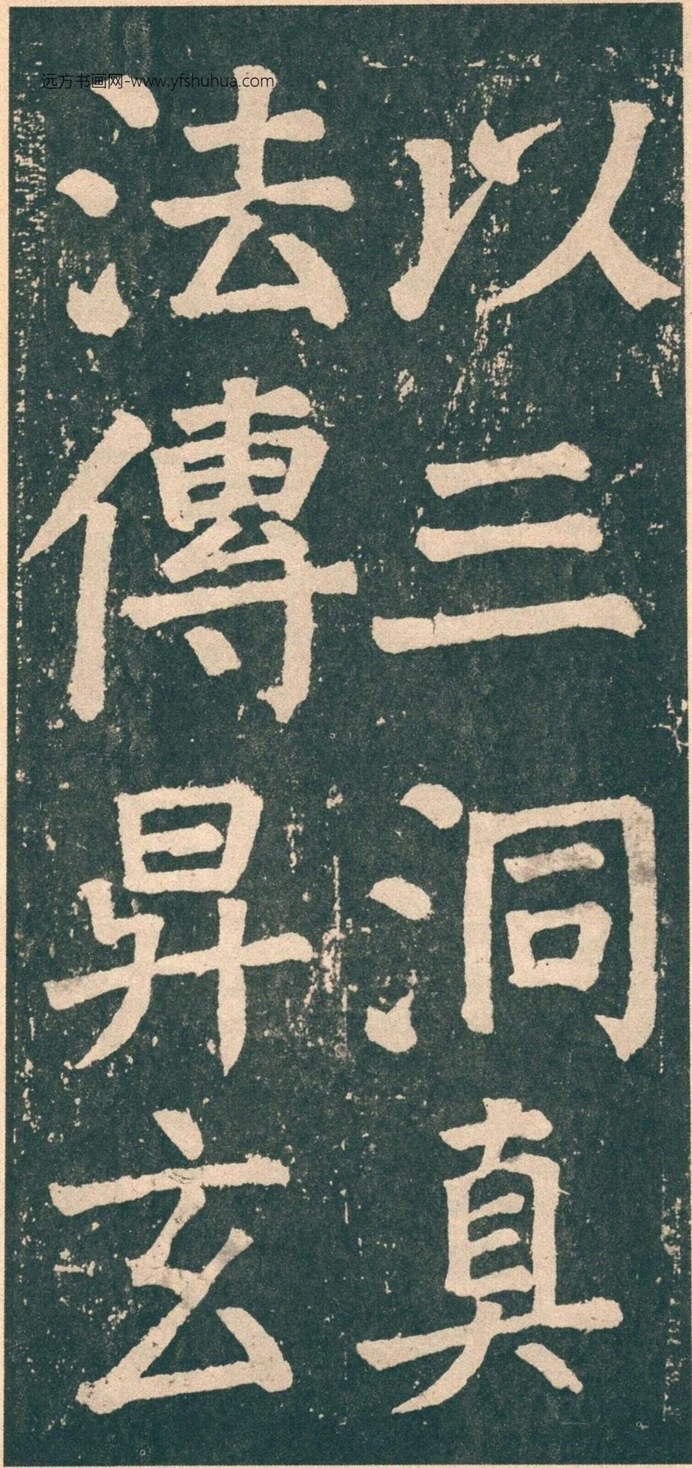 远方书画网-www.yfshuhua.com
以三洞真
法傳昇玄